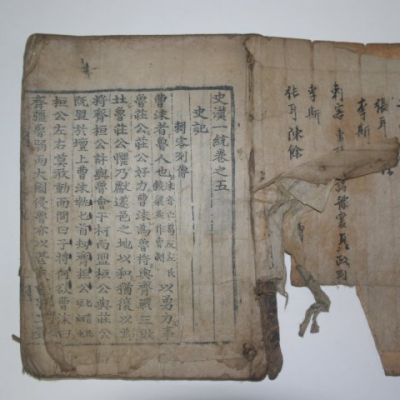 張耳
李斯
刺客
李斯
張耳陳餘
史漢一統卷之五
史記
刺客列傳
曹沫者魯人也以勇力事
魯莊公莊公好力曹沫爲魯將與齊戰三敗
北魯莊公懼乃獻遂邑之地以和猶復以爲
將齊桓公許與魯會于柯而盟桓公與莊公
既盟於壇上曹沫執匕首劫齊桓公
桓公左右莫敢動而問曰子將何欲曹沫曰
齊疆魯弱而大國侵魯亦以甚